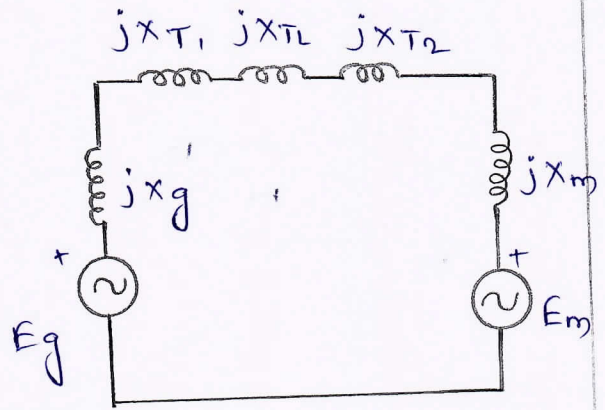 jXT1 jXTL jXT2
jXg
jXm
+
+
Eg
Em